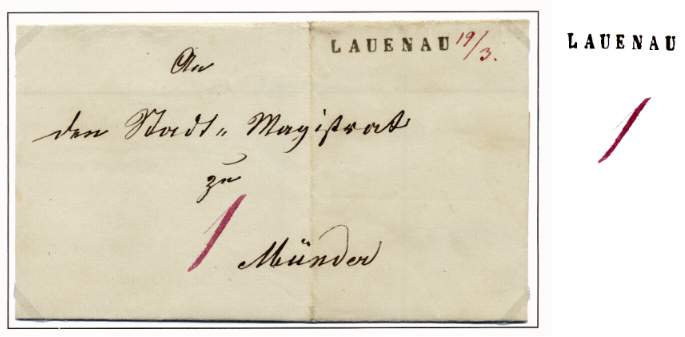 LAUENAU 19/3.
An
den Stadt-Magistrat
zu
1
Münder
LAUENAU
1